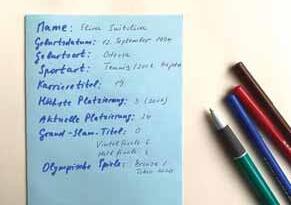 Name: Elina Switolina
Geburtsdatum: 12. September 1994
Geburtsort: Odessa
Sportart: Tennis /
Karrieretitel: 19
Höchste Platzierung: 3 (2017)
Aktuelle Platzierung:
Grand-Slam-Titel: 0
Viertelfinale 6
Halbfinale
Olympische Spiele: Bronze /
Tokio 2020